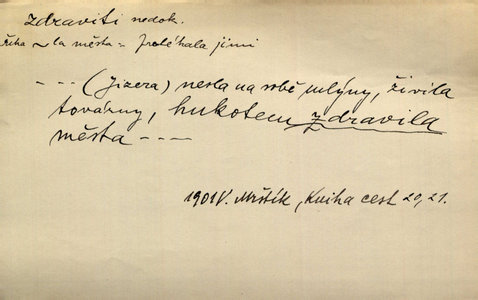 zdraviti nedok.
řeka ~la města = protékala jimi
--- (Jizera) nesla na sobě mlýny, živila
továrny, hukotem zdravila
města ---
1901 V. Mrštík, Kniha cest 20, 21.